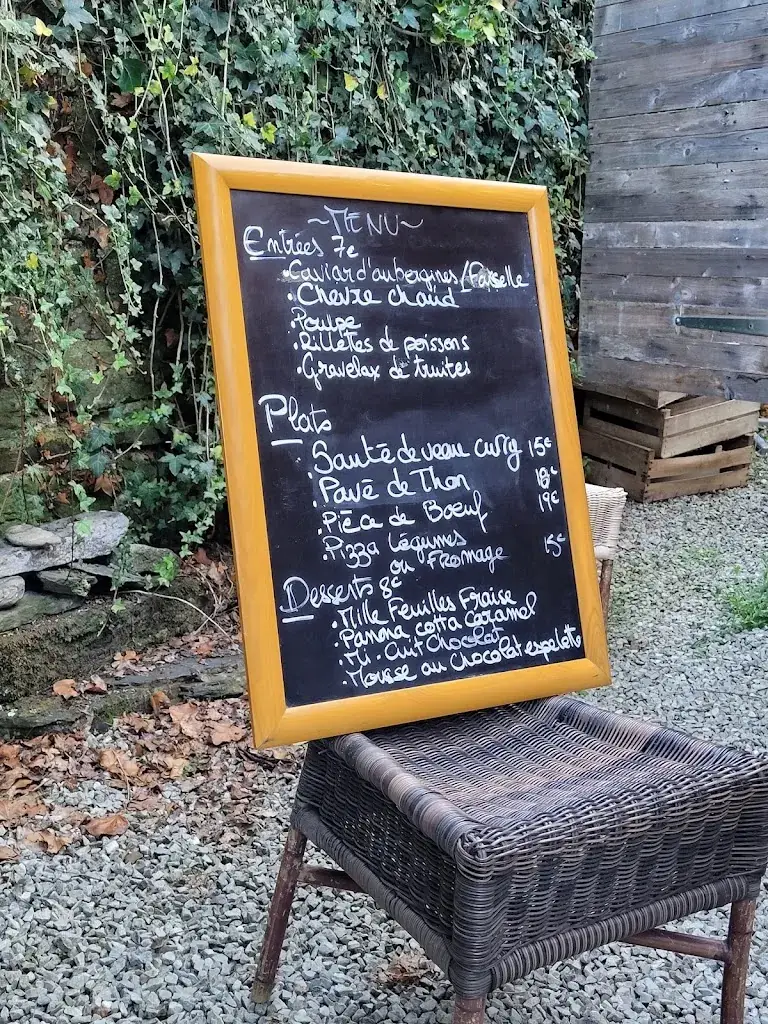 ~MENU~
Entrées 7e
.Caviar d'aubergines/Faisselle
.Chevre chaud
.Poulpe
.Rillettes de poissons
.Gravelax de truites
Plats
.Sauté de veau curry 15€
.Pavé de Thon
.Pièce de Boeuf 19€
.Pizza Légumes
ou Fromage 15€
Desserts 8€
.Mille Feuilles Fraise
.Panna cotta Caramel
.Mi-Cuit Chocolat
.Mousse au Chocolat espelette